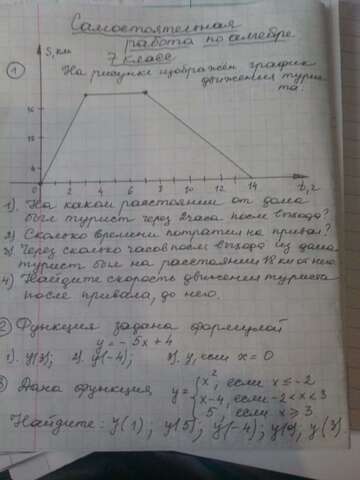 Самостоятельная
работа по алгебре
7 класс
S, км
① На рисунке изображён график
движения турис-
та.
16
4
0 2 4 6 8 10 12 14 t, г
1). На каком расстоянии от дома
был турист через 2 часа после выхода?
2) Сколько времени потратил на привал?
3) Через сколько часов после выхода из дома
турист был на расстоянии 18 км от него
4) Найдите скорость движения туриста
после привала, до него.
② Функция задана формулой
y = - 5x + 4
1). y(3); 2). y(-4); 3). y, если x = 0
3 Дана функция y = { x², если x ≤ -2
x - 4, если -2 < x < 3
5, если x ≥ 3
Найдите: y(1); y(5); y(-4); y(0), y(3).